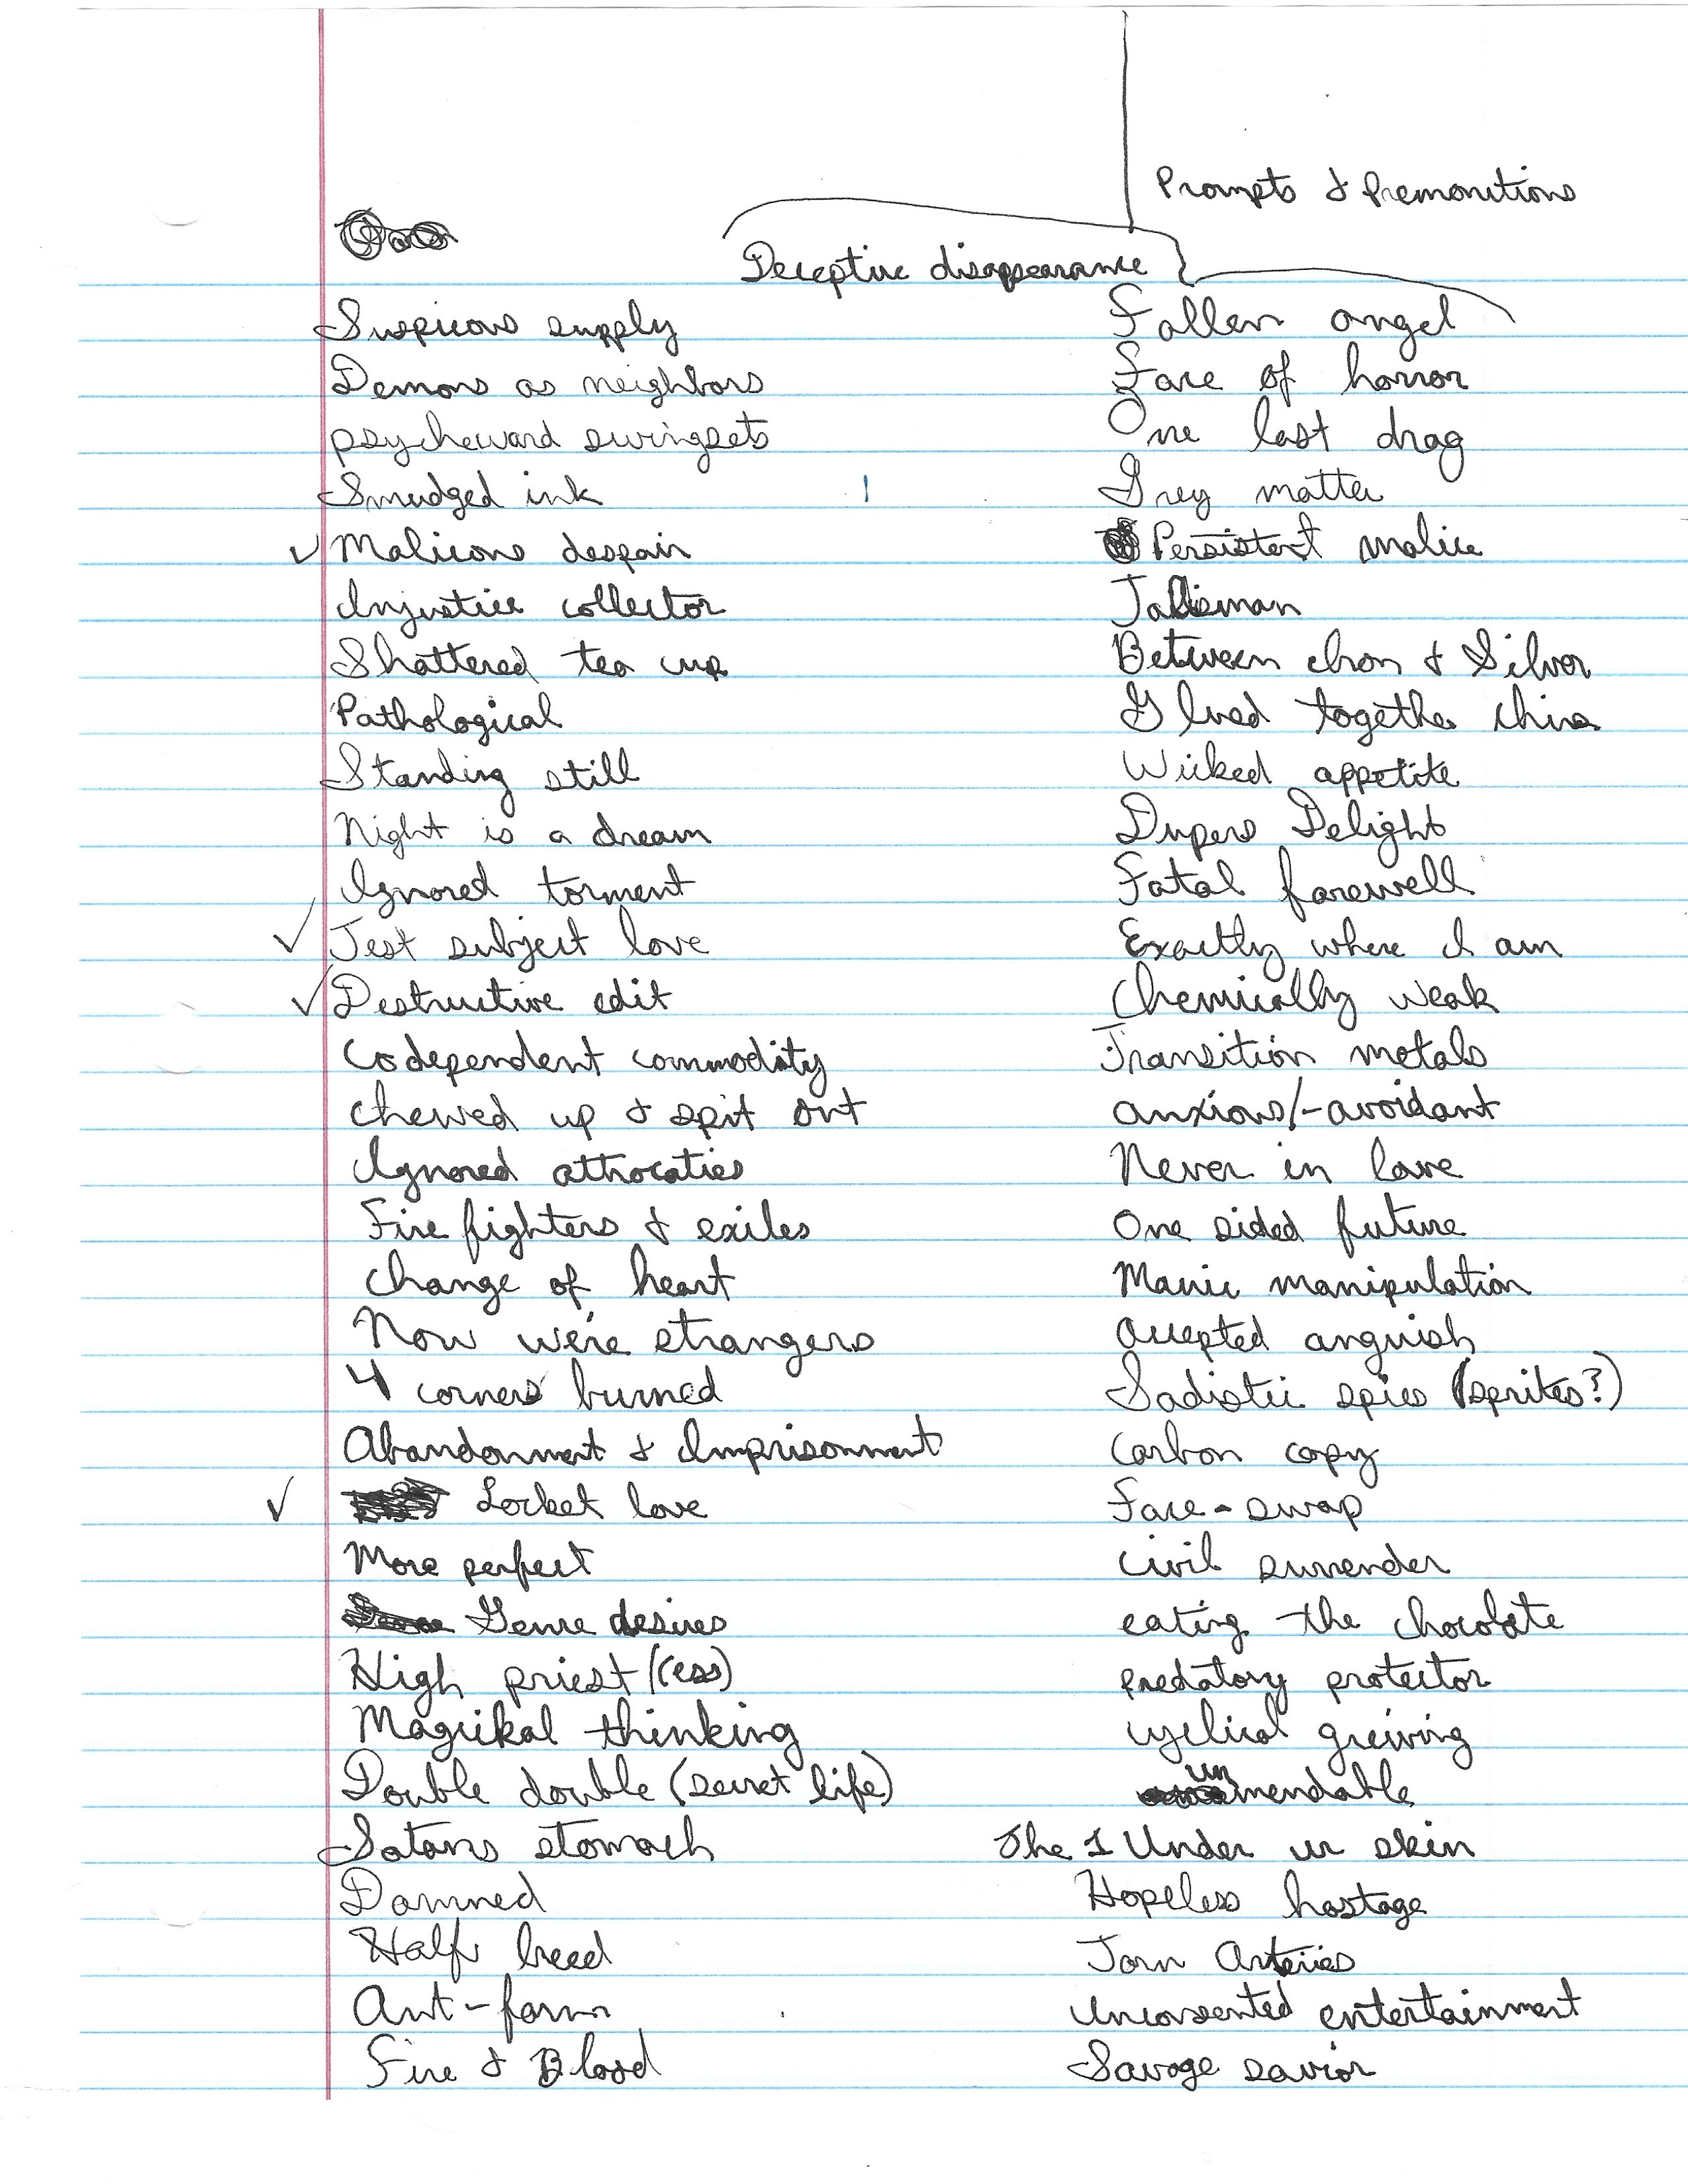 Prompts & Premonitions
Deceptive disappearance
Suspicous supply
Demons as neighbors
psycheward swingsets
Smudged ink
✓ Malicous despair
Injustice collector
Shattered tea cup
Pathological
Standing still
Night is a dream
Ignored torment
✓ Test subject love
✓ Destructive edit
Codependent commodity
Chewed up & spit out
Ignored athrocaties
Fire fighters & exiles
Change of heart
Now we're strangers
4 corners burned
Abandonment & Imprisonment
✓ Locket love
More perfect
desires
High priest/(ess)
Magickal thinking
Double double (secret life)
Satans stomach
Damned
Half breed
Ant-farm
Fire & Blood
Fallen angel
Face of horror
One last drag
Grey matter
Persistent malice
Talisman
Between Iron & Silver
Glued together china
Wicked appetite
Dupers Delight
Fatal farewell
Exactly where I am
Chemically weak
Transition metals
anxious/-avoidant
Never in love
One sided future
Manic manipulation
Accepted anguish
Sadistic spies (sprites?)
Carbon copy
Face-swap
Civil surrender
eating the chocolate
predatory protector
cyclical greiving
unmendable
The 1 Under ur skin
Hopeless hostage
Torn Arteries
Unconsented entertainment
Savage savior